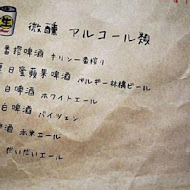 生
微醺 アルコール類
番搾啤酒 キリン一番搾り
日蜜蘋果啤酒 ベルギー林檎ビール
白啤酒 ホワイトエール
白啤酒 バイツェン
酒 赤米エール
だいだいエール